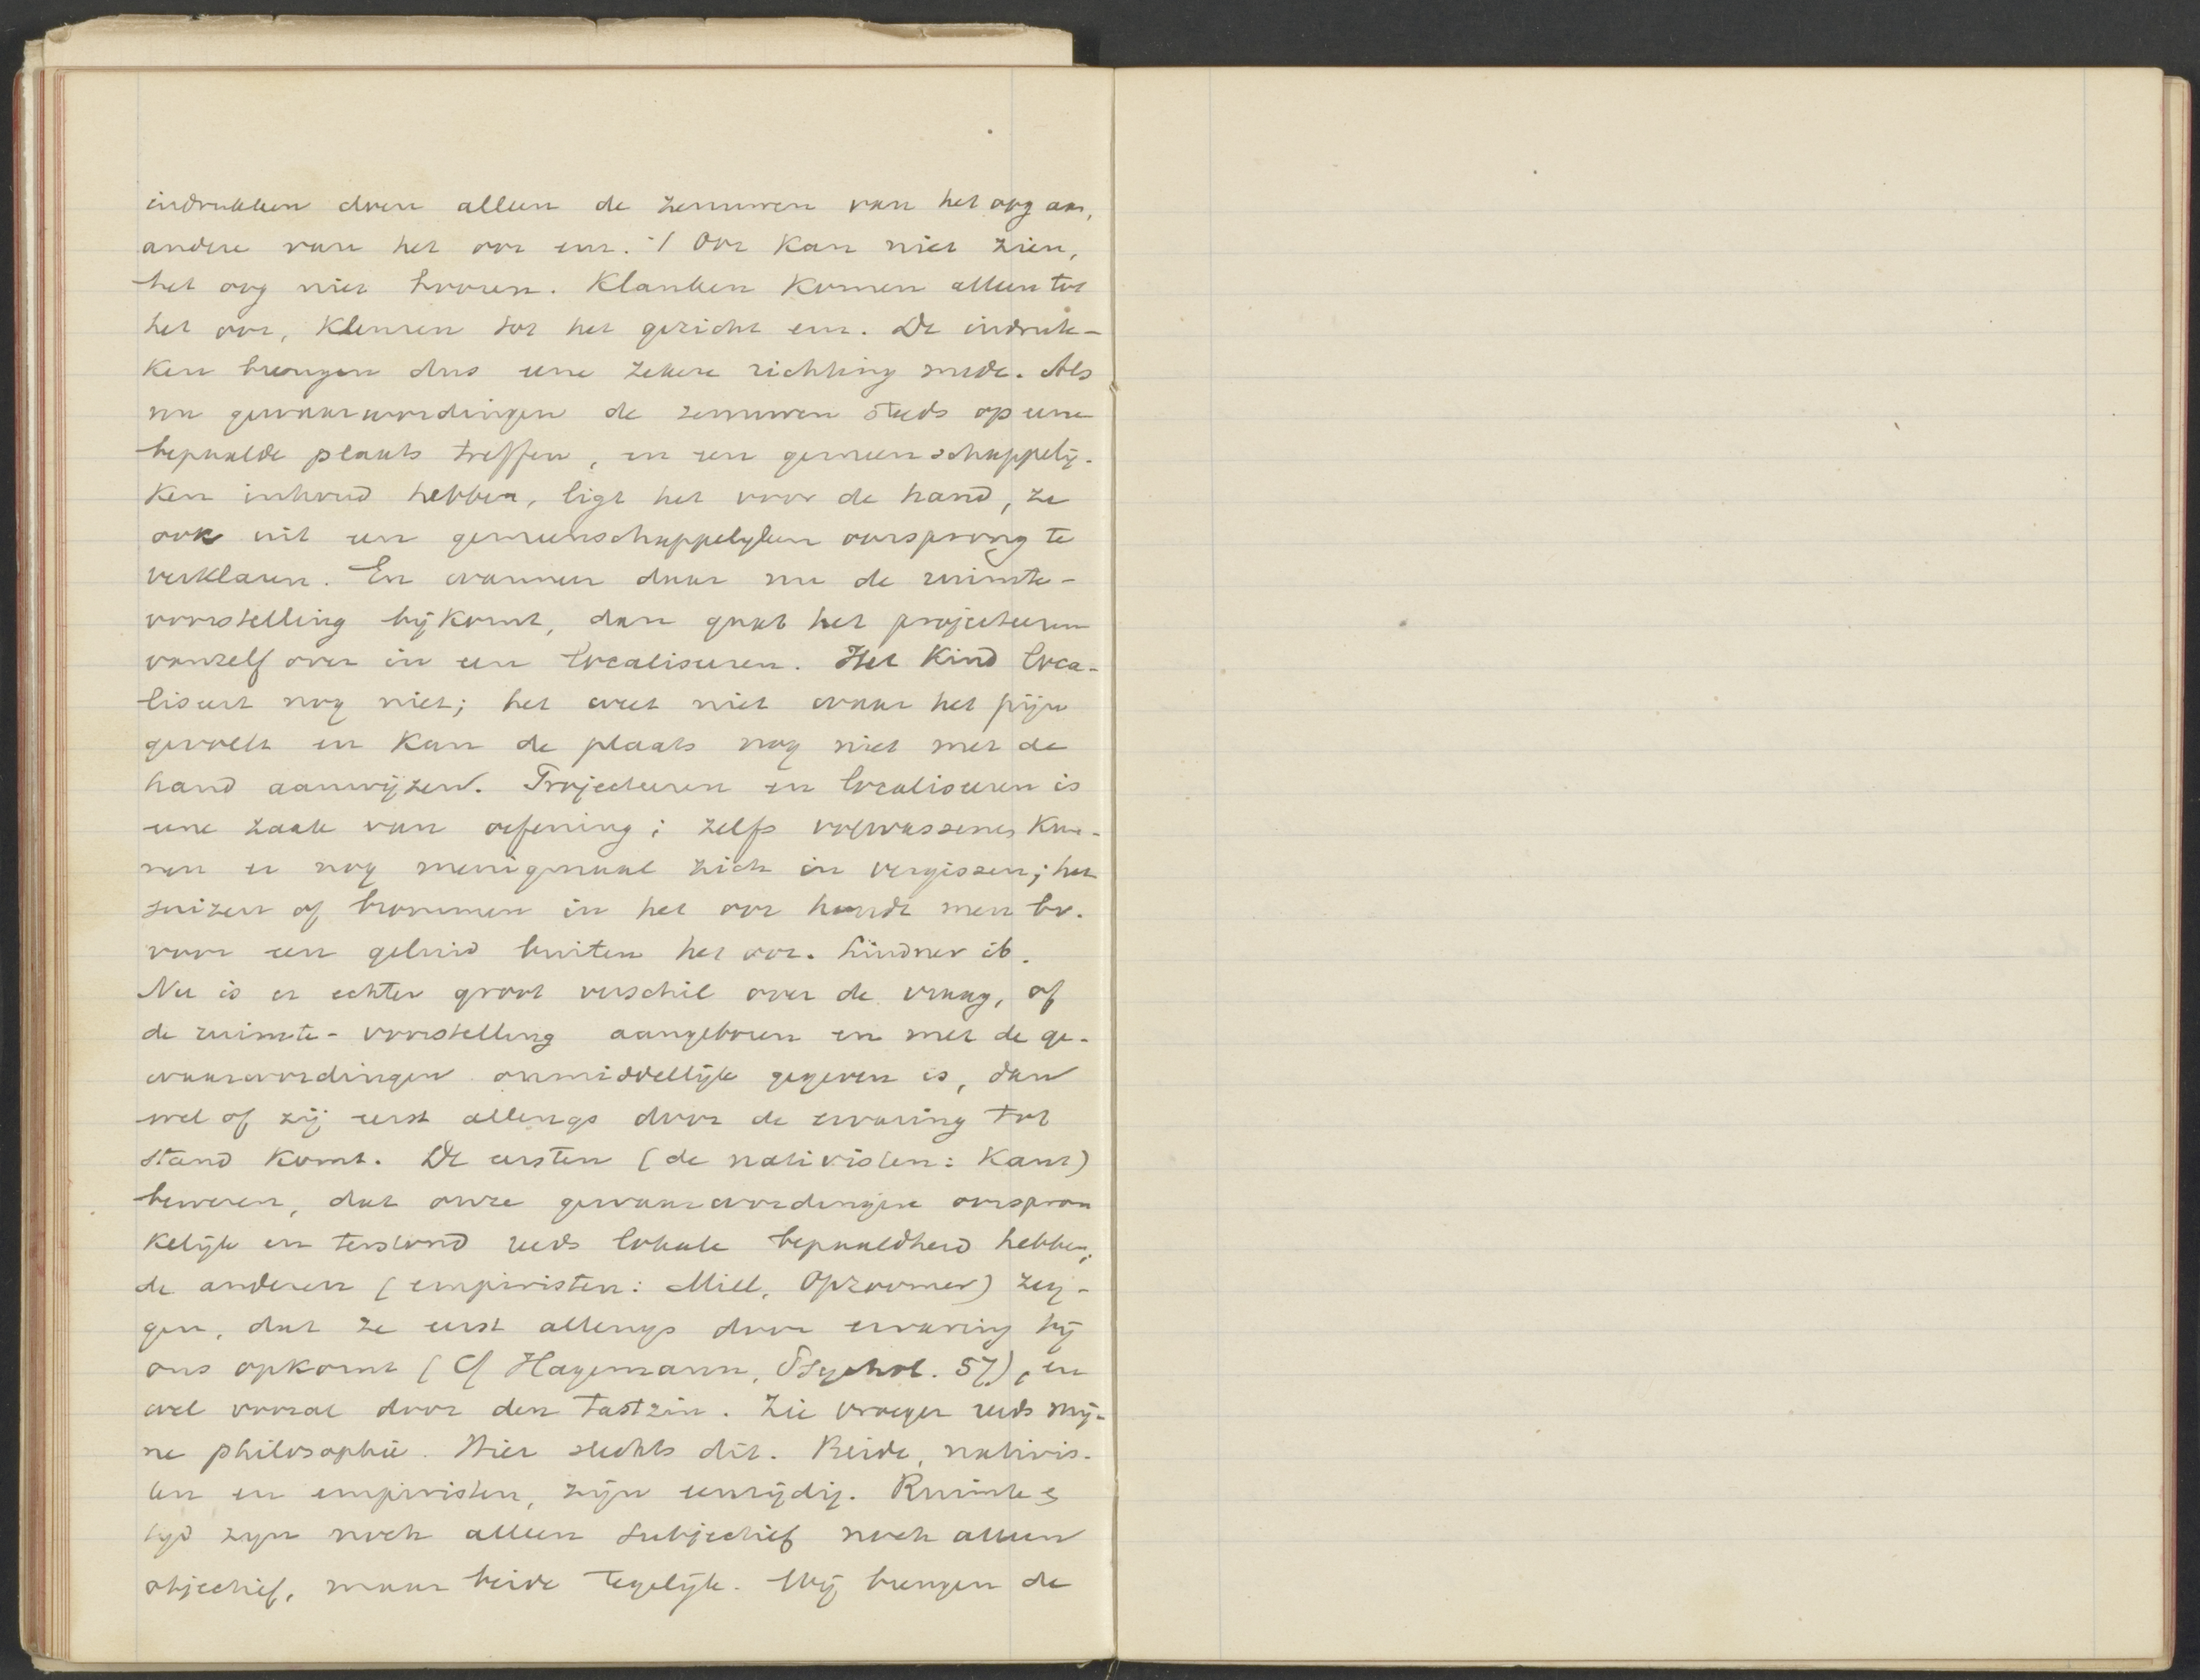 indrukken doen alleen de zenuwen van het oog aan,
andere van het oor enz. 't Oor kan niet zien,
het oog niet hooren. Klanken komen alleen tot
het oor, kleuren tot het gezicht enz. De indruk-
ken brengen dus eene zekere richting mede. Als
nu gewaarwordingen de zenuwen steeds op eene
bepaalde plaats treffen, en een gemeenschappelij-
ken inhoud hebben, ligt het voor de hand, ze
ook uit een gemeenschappelyken oorsprong te
verklaren. En wanneer daar nu de ruimte-
voorstelling bijkomt, dan gaat het projecteeren
vanzelf over in een localiseeren. Het kind loca-
liseert nog niet; het weet niet waar het pijn
gevoelt en kan de plaats nog niet met de
hand aanwijzen. Projecteeren en localiseeren is
eene zaak van oefening; zelfs volwassenen kun-
nen er nog menigmaal zich in vergissen; het
suizen of brommen in het oor houdt men bv.
voor een geluid buiten het oor. Lindner ib.
Nu is er echter groot verschil over de vraag, of
de ruimte-voorstelling aangeboren en met de ge-
waarwordingen onmiddellijk gegeven is, dan
wel of zij eerst allengs door de ervaring tot
stand komt. De eersten (de nativisten: Kant)
beweren, dat onze gewaarwordingen oorspron
kelijk en terstond reeds lokale bepaaldheid hebben;
de anderen (empiristen: Mill, Opzoomer) zeg-
gen, dat ze eerst allengs door ervaring bij
ons opkomt (Cf Hagemann, Psychol. 57), en
wel vooral door den tastzin. Zie vroeger reeds mij-
ne philosophie. Hier slechts dit. Beide, nativis-
ten en empiristen, zijn eenzijdig. Ruimte &
tyd zyn noch alleen subjectief noch alleen
objectief, maar beide tegelijk. Wij brengen de